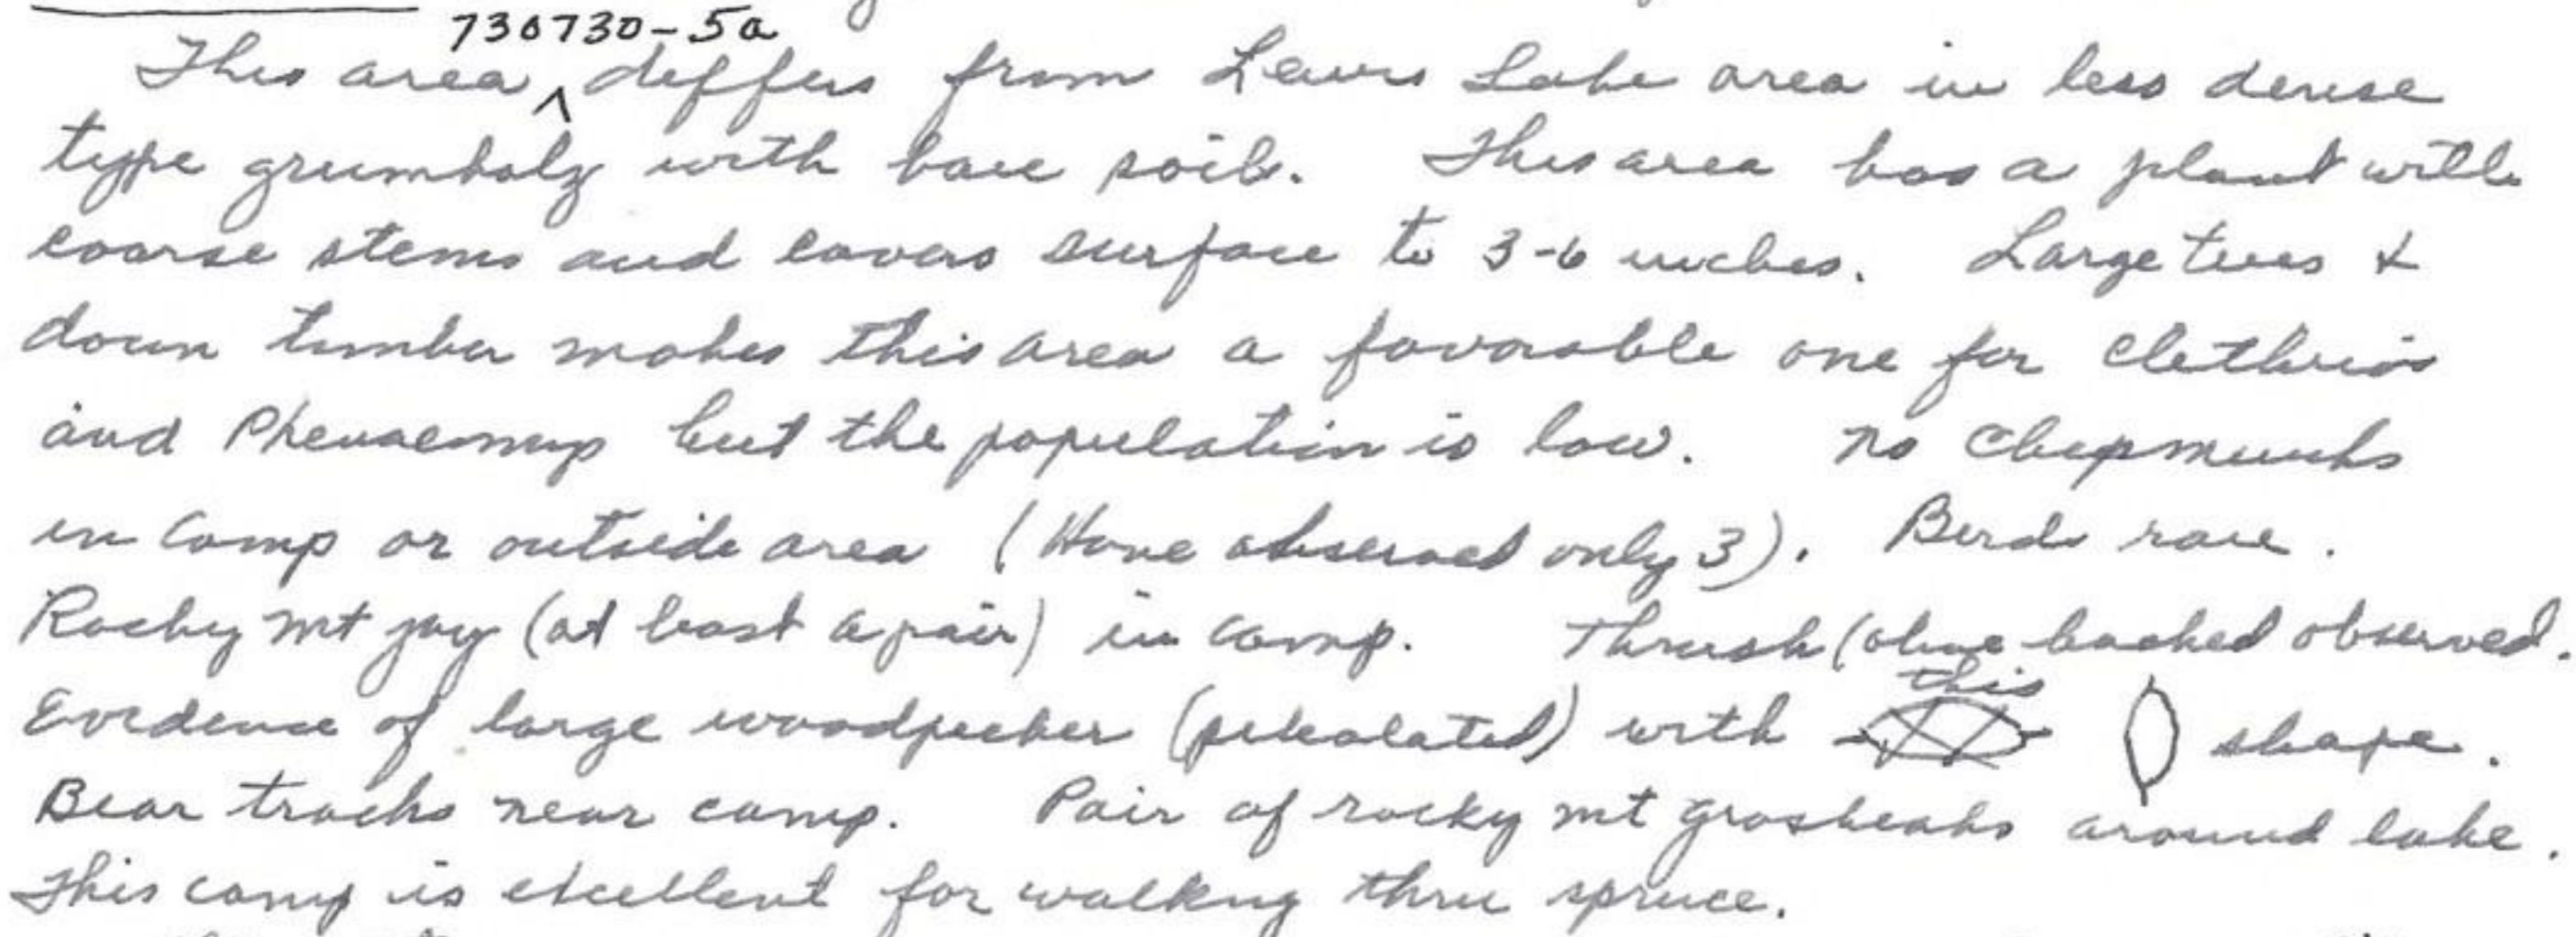 730730-5a
This area ^ differs from Lewis Lake area in less dense
type grumholz with bare soils. This area has a plant with
coarse stems and covers surface to 3-6 inches. Large trees &
down timber makes this area a favorable one for Clethrio
and Phenacomys but the population is low. No Chipmunks
in camp or outside area (Have observed only 3). Birds rare.
Rocky mt jay (at least a pair) in camp. Thrush (olive backed observed.
Evidence of large woodpecker (pileolated) with this shape.
Bear tracks near camp. Pair of rocky mt grosbeaks around lake.
This camp is excellent for walking thru spruce.